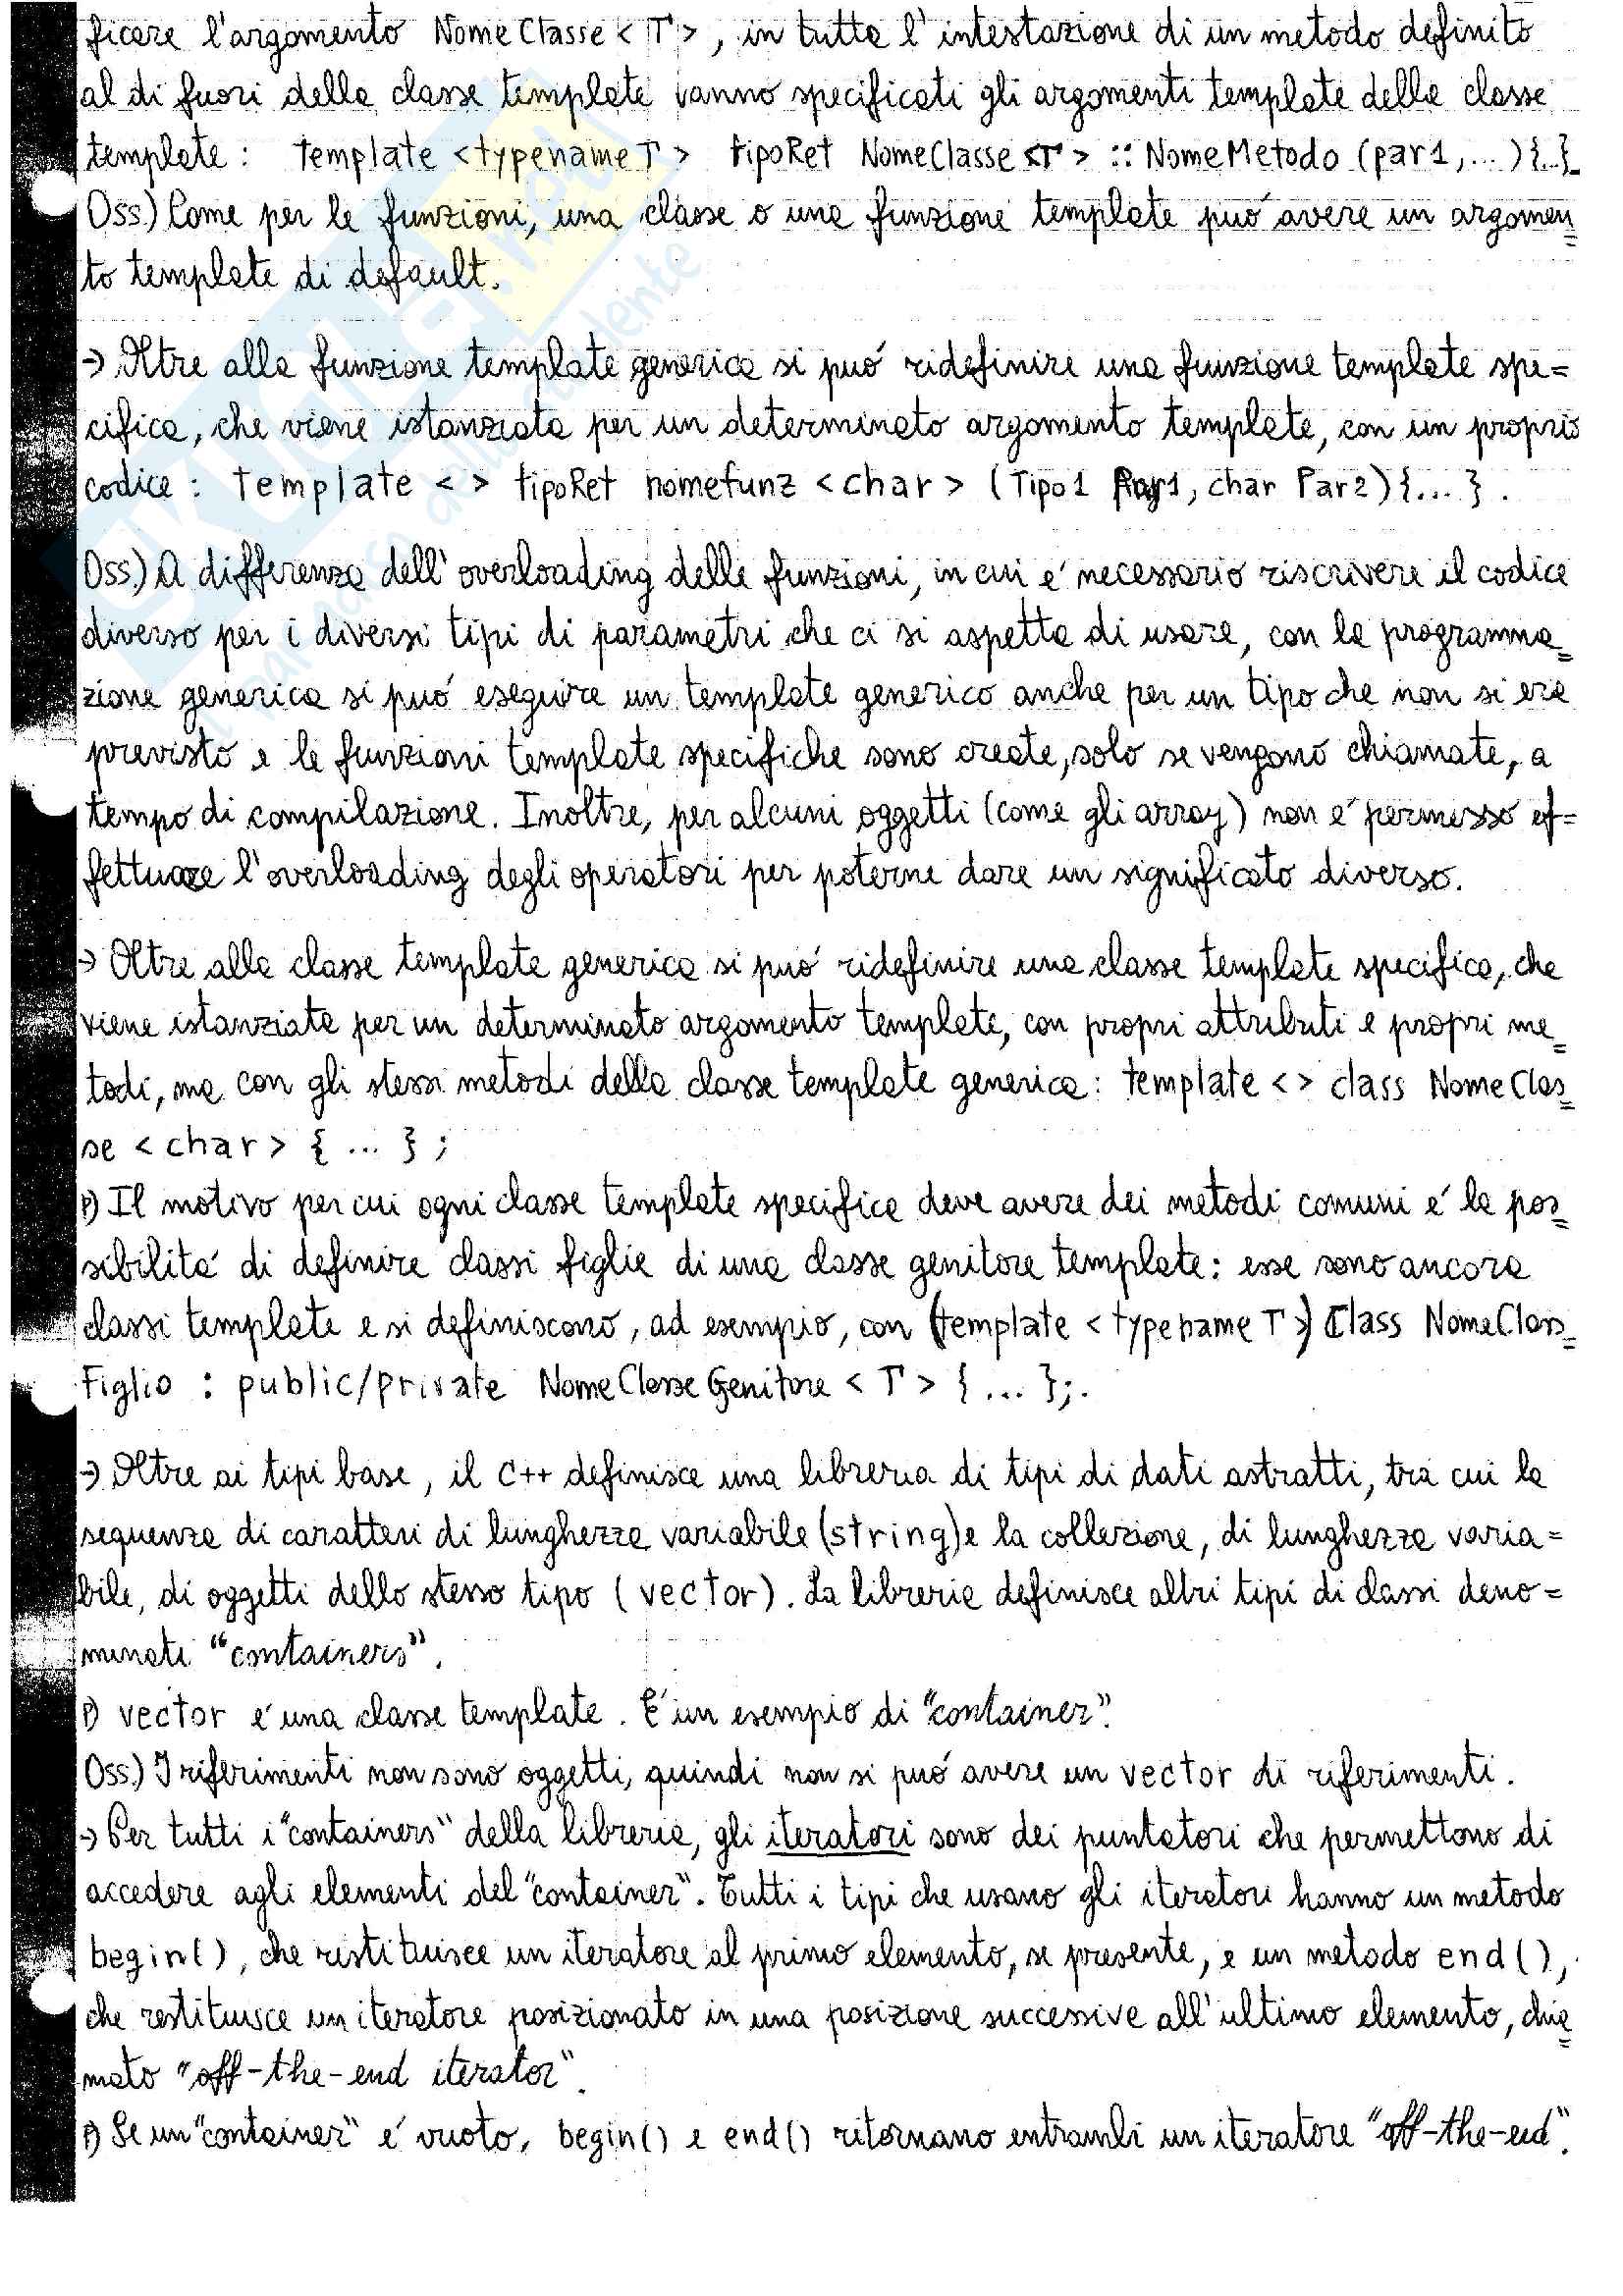 ficare l'argomento NomeClasse < T >, in tutta l'intestazione di un metodo definito
al di fuori della classe template vanno specificati gli argomenti template della classe
template: Template <typename T > tipoRet NomeClasse <T> :: NomeMetodo (par1, ...) {...}
Oss.) Come per le funzioni, una classe o una funzione template puó avere un argomen
to template di default.
→ Oltre alla funzione template generica si puó ridefinire una funzione template spe=
cifica, che viene istanziata per un determinato argomento template, con un proprio
codice: Template < > tipoRet nomefunz <char> (Tipo1 Par1, char Par2) {...}.
Oss.) A differenza dell'overloading delle funzioni, in cui é necessario riscrivere il codice
diverso per i diversi tipi di parametri che ci si aspetta di usare, con la programma=
zione generica si puó eseguire un template generico anche per un tipo che non si era
previsto e le funzioni template specifiche sono create, solo se vengono chiamate, a
tempo di compilazione. Inoltre, per alcuni oggetti (come gli array) non é permesso ef=
fettuare l'overloading degli operatori per poterne dare un significato diverso.
→ Oltre alla classe template generica si puó ridefinire una classe template specifica, che
viene istanziata per un determinato argomento template, con propri attributi e propri me=
todi, ma con gli stessi metodi della classe template generica: template < > class NomeClas=
se <char> { ... } ;
P) Il motivo per cui ogni classe template specifica deve avere dei metodi comuni é la pos=
sibilitá di definire classi figlie di una classe genitore template: esse sono ancora
classi template e si definiscono, ad esempio, con (template < typename T >) Class NomeClass=
Figlio : public/private NomeClasseGenitore < T > { ... };.
→ Oltre ai tipi base, il C++ definisce una libreria di tipi di dati astratti, tra cui la
sequenza di caratteri di lunghezza variabile (string) e la collezione, di lunghezza varia=
bile, di oggetti dello stesso tipo (vector). La libreria definisce altri tipi di classi deno=
minati "containers".
P) vector é una classe template. É un esempio di "container".
Oss.) I riferimenti non sono oggetti, quindi non si puó avere un vector di riferimenti.
→ Per tutti i "containers" della libreria, gli iteratori sono dei puntatori che permettono di
accedere agli elementi del "container". Tutti i tipi che usano gli iteratori hanno un metodo
begin(), che restituisce un iteratore al primo elemento, se presente, e un metodo end(),
che restituisce un iteratore posizionato in una posizione successiva all'ultimo elemento, chia=
mato "off-the-end iterator".
P) Se un "container" é vuoto, begin() e end() ritornano entrambi un iteratore "off-the-end".